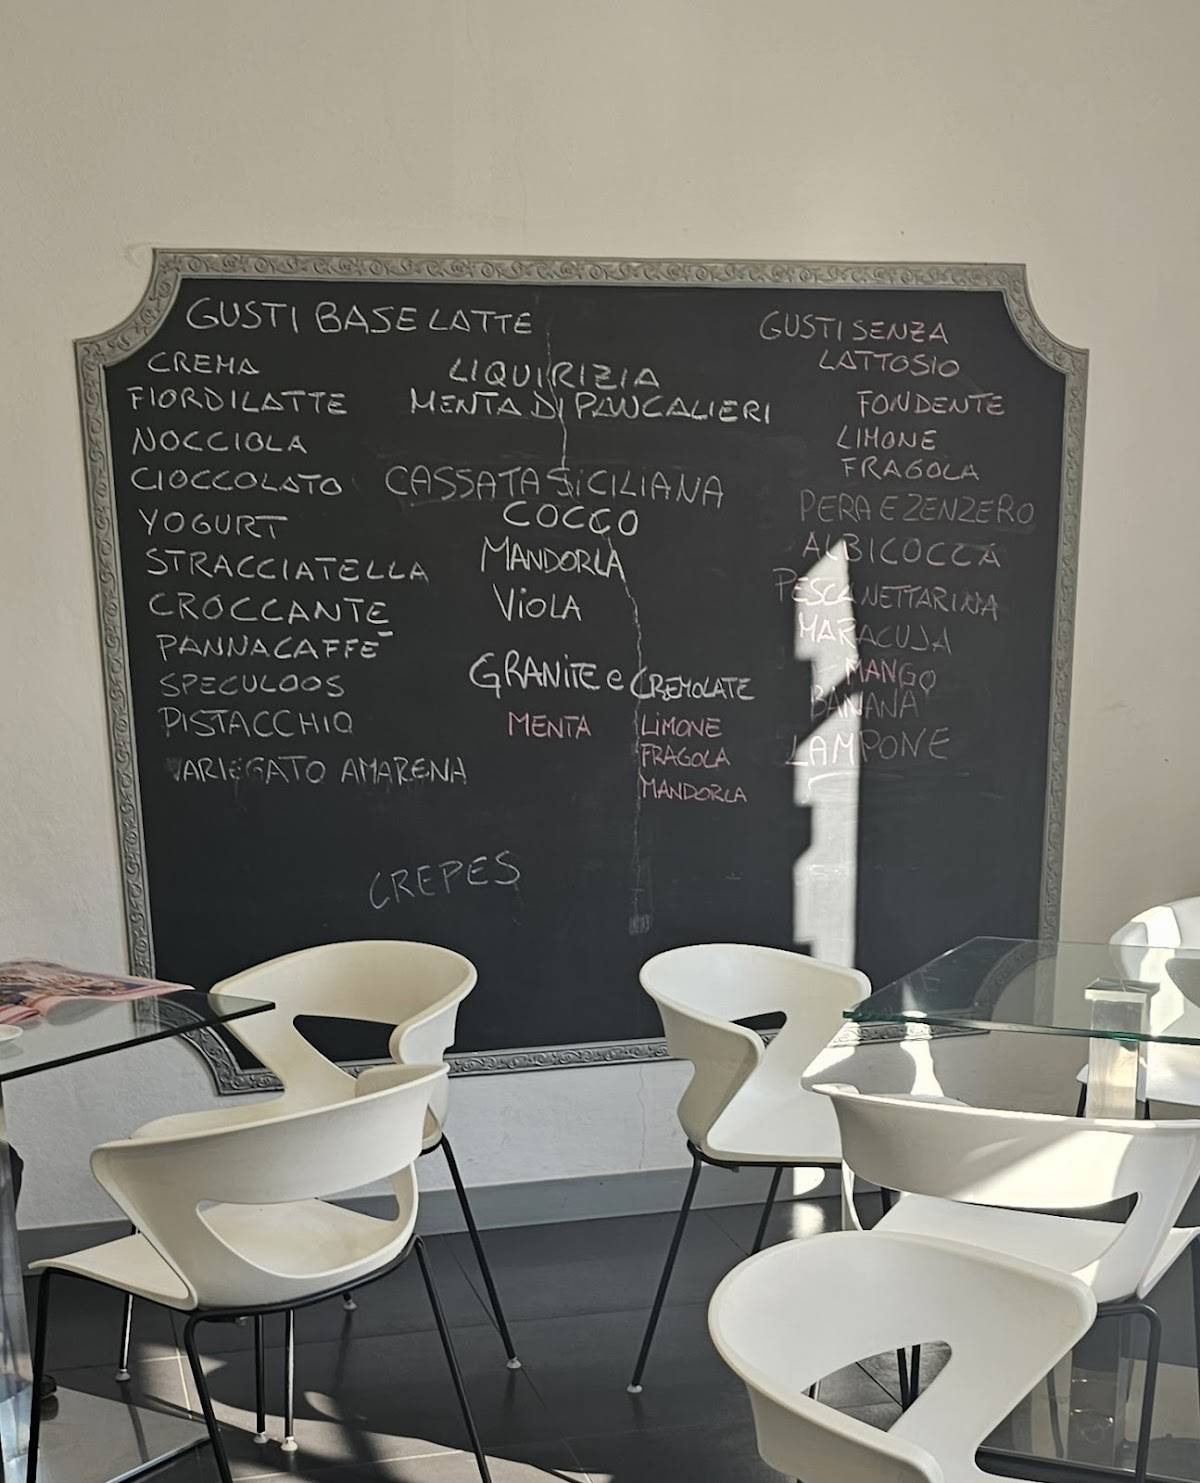 GUSTI BASE LATTE
CREMA
FIORDILATTE
NOCCIOLA
CIOCCOLATO
YOGURT
STRACCIATELLA
CROCCANTE
PANNACAFFE
SPECULOOS
PISTACCHIO
VARIEGATO AMARENA
LIQUIRIZIA
MENTA DI PANCALIERI
CASSATA SiCILIANA
COCCO
MANDORLA
VIOLA
GRANITE e CREMOLATE
MENTA
LIMONE
FRAGOLA
MANDORLA
CREPES
GUSTI SENZA
LATTOSIO
FONDENTE
LIMONE
FRAGOLA
PERA E ZENZERO
ALBICOCCA
PESCA NETTARINA
MARACUJA
MANGO
BANANA
LAMPONE